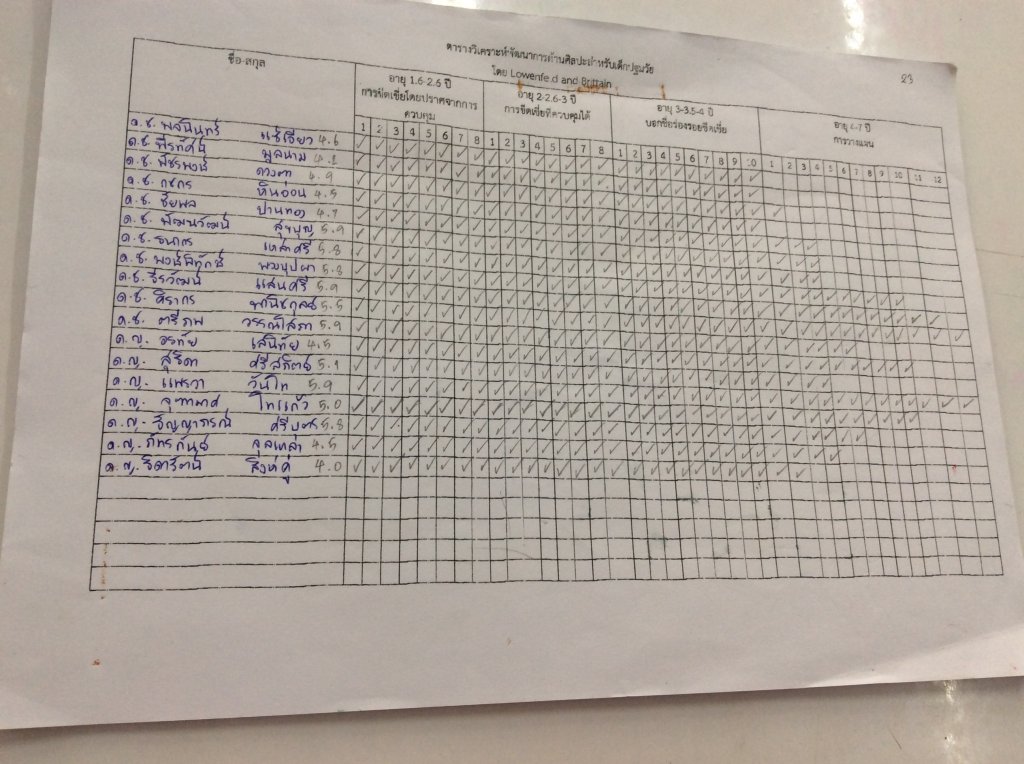 23
ตารางวิเคราะห์พัฒนาการด้านศิลปะสำหรับเด็กปฐมวัย
โดย Lowenfeld and Brittain
ชื่อ-สกุล
อายุ 1.6-2.6 ปี
การขีดเขี่ยโดยปราศจากการ
ควบคุม
อายุ 2-2.6-3 ปี
การขีดเขี่ยที่ควบคุมได้
อายุ 3-3.5-4 ปี
บอกชื่อร่องรอยขีดเขี่ย
อายุ 4-7 ปี
การวางแผน
1 2 3 4 5 6 7 8 1 2 3 4 5 6 7 8 1 2 3 4 5 6 7 8 9 10 1 2 3 4 5 6 7 8 9 10 11 12
ด.ช. พสินินทร์ 4.6
ด.ช. พีรทัศน์ พูลนาม 4.1
ด.ช. พัชรพงษ์ ดวงตา 4.9
ด.ช. กชกร หินอ่อน 4.5
ด.ช. ชัยพล ปานทอง 4.7
ด.ช. พัฒนวัฒน์ สุขบุญ 5.9
ด.ช. ธนากร เหล่าศรี 5.8
ด.ช. พงษ์พิทักษ์ 5.8
ด.ช. ธีรวัฒน์ แสนศรี 5.9
ด.ช. ศิรากร พานิชกุลธร 5.5
ด.ช. ตรีภพ วรรณโสภา 5.9
ด.ญ. อรทัย เสนิทัย 4.5
ด.ญ. สุธิดา 5.1
ด.ญ. แพรวา วันโท 5.9
ด.ญ. จุฑามาศ ไทแก้ว 5.0
ด.ญ. ธัญญาภรณ์ ศรีบุตร 5.8
ด.ญ. ภัทรกันย์ จุลเหล่า 4.5
ด.ญ. ธิดารัตน์ สิงห์คู่ 4.0